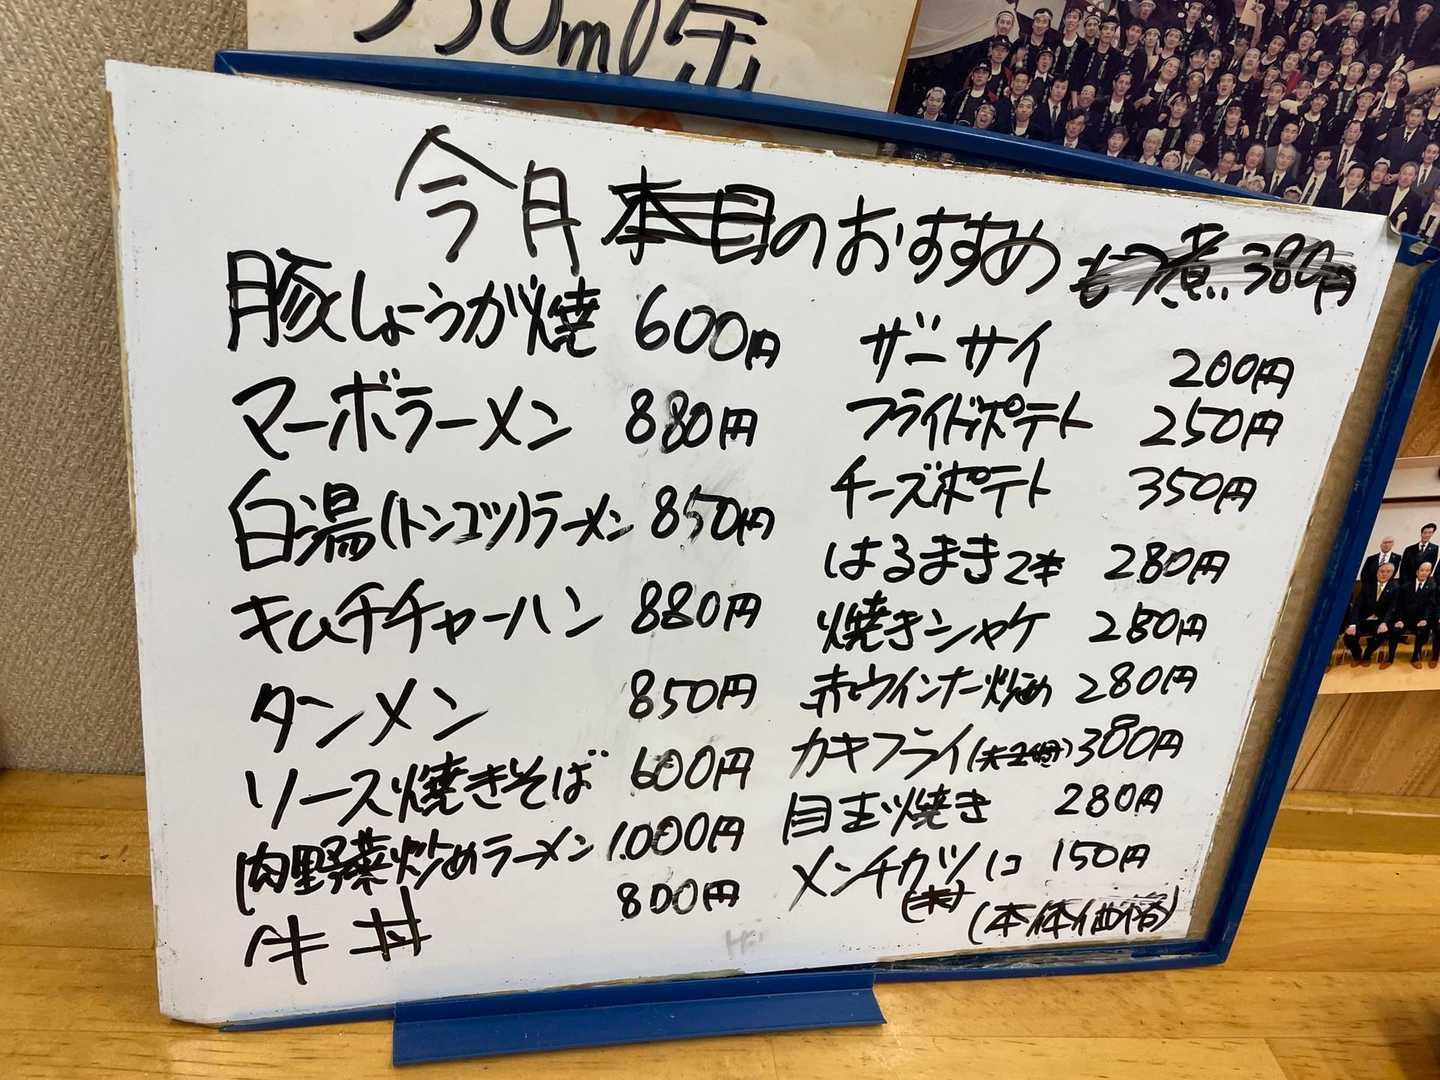 350ml缶
今月本日のおすすめ
もつ煮 380円
豚しょうが焼 600円
マーボラーメン 880円
白湯(トンコツ)ラーメン 850円
キムチチャーハン 880円
タンメン 850円
ソース焼きそば 600円
肉野菜炒めラーメン 1,000円
牛丼 800円
ザーサイ 200円
フライドポテト 250円
チーズポテト 350円
はるまき2本 280円
焼きシャケ 280円
赤ウインナー炒め 280円
カキフライ 380円
目玉焼き 280円
メンチカツ1コ 150円
(本体価格)